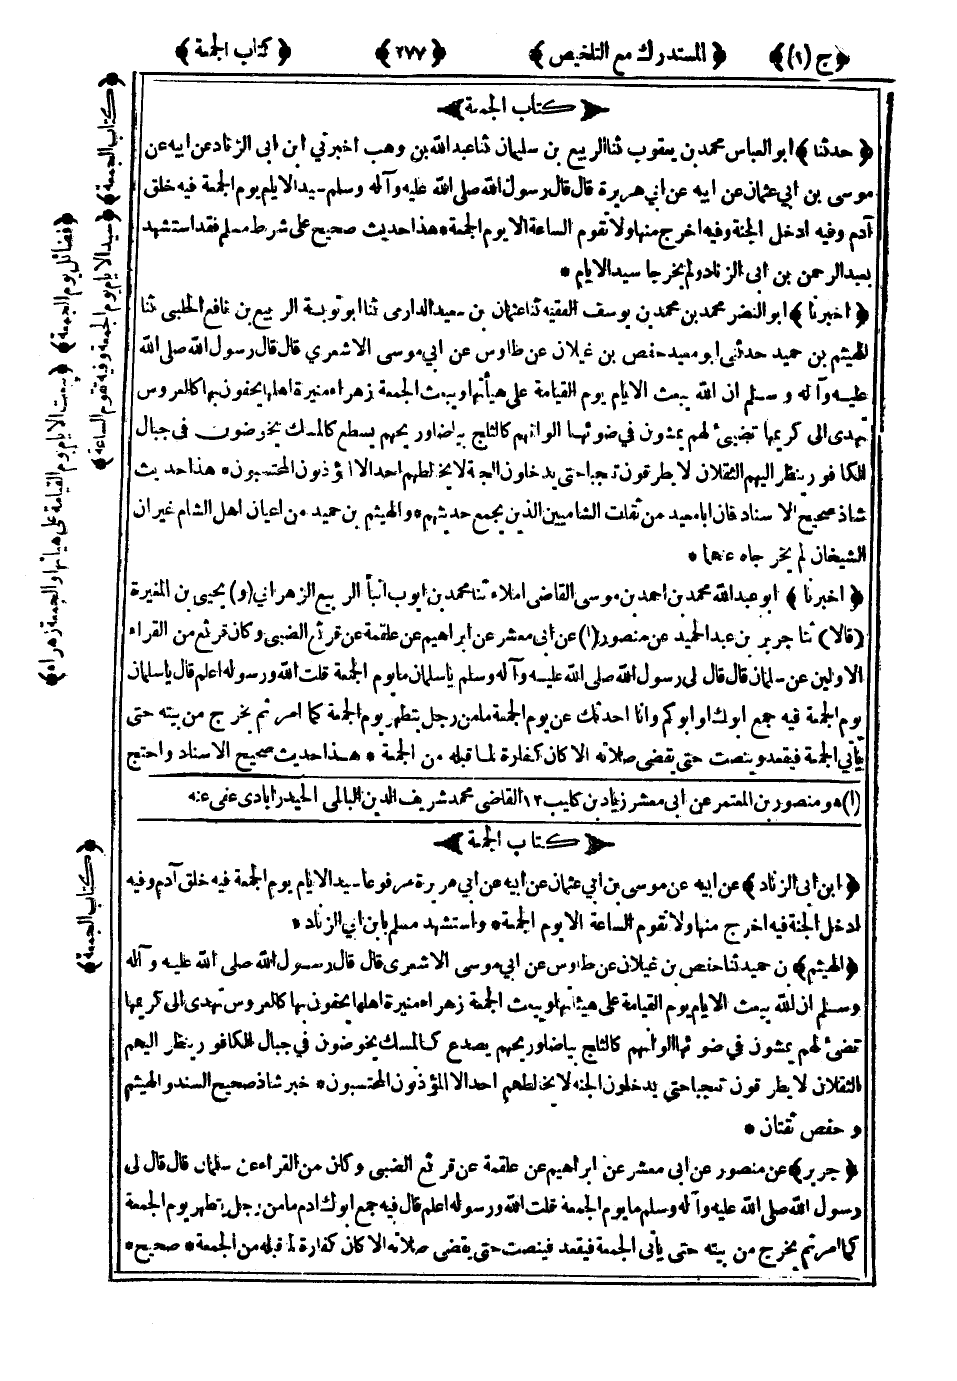 ﴿ ج (١) ﴾ ﴿ المستدرك مع التلخيص ﴾ ﴿ ٢٧٧ ﴾ ﴿ كتاب الجمعة ﴾
كتاب الجمعة
﴿ حدثنا ﴾ ابو العباس محمد بن يعقوب ثنا الربيع بن سليمان ثنا عبد الله بن وهب اخبرني ابن ابى الزناد عن ابيه عن
موسى بن ابي عثمان عن ابيه عن ابي هريرة قال قال رسول الله صلى الله عليه وآله وسلم سيد الايام يوم الجمعة فيه خلق
آدم وفيه ادخل الجنة وفيه اخرج منها ولا تقوم الساعة الا يوم الجمعة * هذا حديث صحيح على شرط مسلم فقد استشهد
بعبد الرحمن بن ابى الزناد ولم يخرجا سيد الايام *
﴿ اخبرنا ﴾ ابو النضر محمد بن محمد بن يوسف الفقيه ثنا عثمان بن سعيد الدارمى ثنا ابو توبة الربيع بن نافع الحلبى ثنا
الهيثم بن حميد حدثنى ابو معيد حفص بن غيلان عن طاوس عن ابي موسى الاشعري قال قال رسول الله صلى الله
عليه وآله وسلم ان الله يبعث الايام يوم القيامة على هيأتها ويبعث الجمعة زهراء منيرة اهلها يحفون بها كالعروس
تهدى الى كريمها تضيئ لهم يمشون في ضوئها الوانهم كالثلج بياضا وريحهم يسطع كالمسك يخوضون فى جبال
الكافور ينظر اليهم الثقلان لا يطرقون تعجبا حتى يدخلون الجنة لا يخالطهم احد الا المؤذنون المحتسبون * هذا حديث
شاذ صحيح الاسناد فان ابا معيد من ثقات الشاميين الذين يجمع حديثهم * والهيثم بن حميد من اعيان اهل الشام غير ان
الشيخان لم يخرجاه عنهما *
﴿ اخبرنا ﴾ ابو عبد الله محمد بن احمد بن موسى القاضى املاء ثنا محمد بن ايوب انبأ الربيع الزهراني (و) يحيى بن المغيرة
(قالا) ثنا جرير بن عبد الحميد عن منصور (١) عن ابى معشر عن ابراهيم عن علقمة عن قرثع الضبى وكان قرثع من القراء
الاولين عن سلمان قال قال لى رسول الله صلى الله عليه وآله وسلم يا سلمان ما يوم الجمعة قلت الله ورسوله اعلم قال يا سلمان
يوم الجمعة فيه جمع ابوك او ابوكم وانا احدثك عن يوم الجمعة ما من رجل يتطهر يوم الجمعة كما امر ثم يخرج من بيته حتى
يأتي الجمعة فيقعد وينصت حتى يقضى صلاته الا كان كفارة لما قبله من الجمعة * هذا حديث صحيح الاسناد واحتج
(١) هو منصور بن المعتمر عن ابى معشر زياد بن كليب ١٢ القاضى محمد شريف الدين البالمى الحيدرابادى عفى عنه
كتاب الجمعة
﴿ ابن ابى الزناد ﴾ عن ابيه عن موسى بن ابي عثمان عن ابيه عن ابي هريرة مرفوعا سيد الايام يوم الجمعة فيه خلق آدم وفيه
ادخل الجنة فيه اخرج منها ولا تقوم الساعة الا يوم الجمعة * واستشهد مسلم بابن ابي الزناد *
﴿ الهيثم ﴾ بن حميد ثنا حفص بن غيلان عن طاوس عن ابي موسى الاشعرى قال قال رسول الله صلى الله عليه وآله
وسلم ان الله يبعث الايام يوم القيامة على هيئاتها ويبعث الجمعة زهراء منيرة اهلها يحفون بها كالعروس تهدى الى كريمها
تضئ لهم يمشون في ضوئها الوانهم كالثلج بياضا وريحهم يصدع كالمسك يخوضون في جبال الكافور ينظر اليهم
الثقلان لا يطرقون تعجبا حتى يدخلون الجنة لا يخالطهم احد الا المؤذنون المحتسبون * خبر شاذ صحيح السند والهيثم
و حفص ثقتان *
﴿ جرير ﴾ عن منصور عن ابى معشر عن ابراهيم عن علقمة عن قرثع الضبى وكان من القراء عن سلمان قال قال لى
رسول الله صلى الله عليه وآله وسلم ما يوم الجمعة قلت الله ورسوله اعلم قال فيه جمع ابوك ادم ما من رجل يتطهر يوم الجمعة
كما امر ثم يخرج من بيته حتى يأتى الجمعة فيقعد فينصت حتى يقضى صلاته الا كان كفارة لما قبله من الجمعة * صحيح *
﴿ كتاب الجمعة ﴾ ﴿ سيد الايام يوم الجمعة وفيه تقوم الساعة ﴾
﴿ فضائل يوم الجمعة ﴾ ﴿ يبعث الايام يوم القيامة على هيأتها والجمعة زهراء ﴾
﴿ كتاب الجمعة ﴾